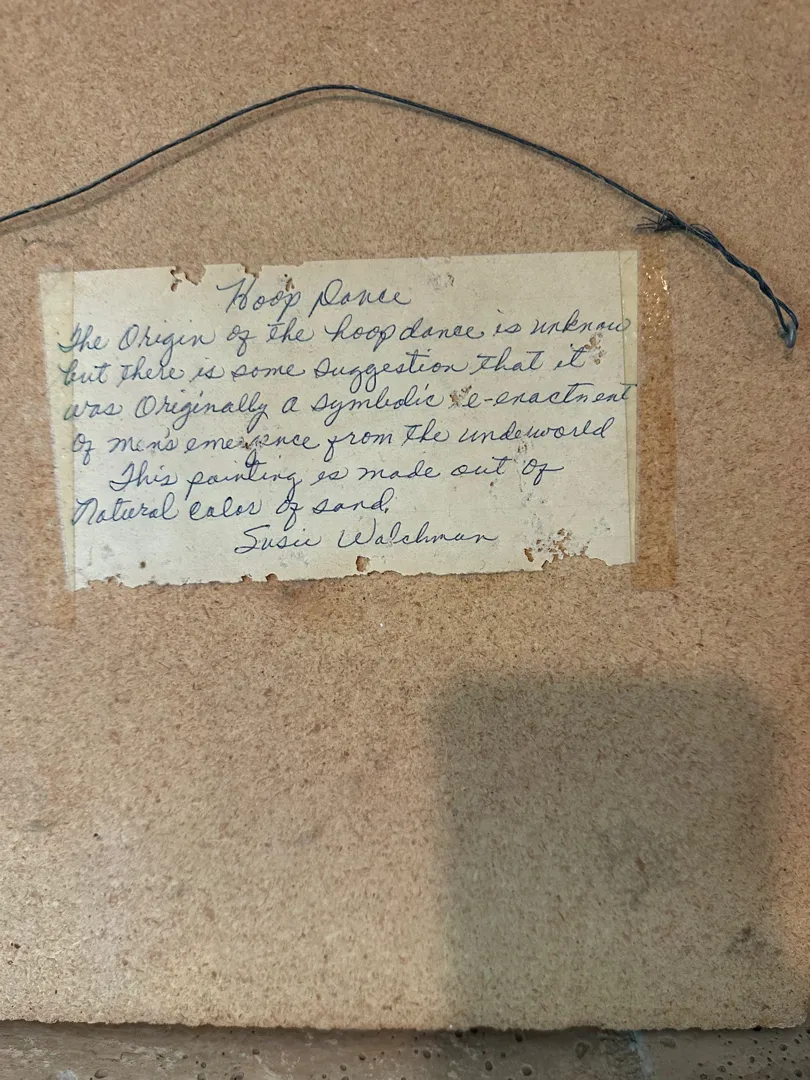 Hoop Dance
The Origin of the hoop dance is unknow
but there is some suggestion that it
was Originally a symbolic re-enactment
of men's emergence from the undeworld
This painting is made out of
Natural color of sand.
Susie Walchman